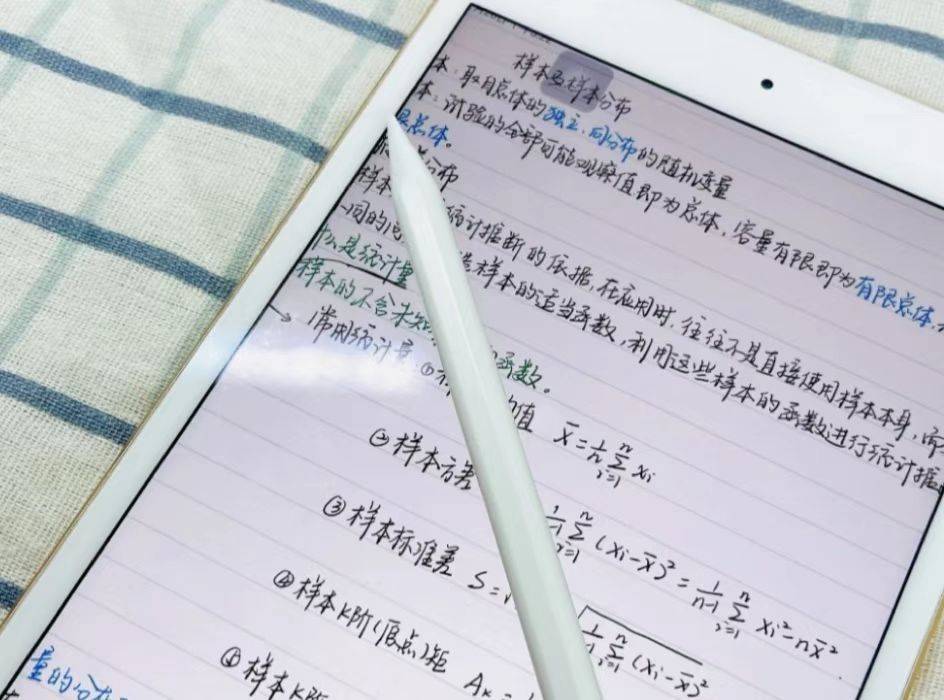 样本及样本分布
本：取自总体的独立、同分布的随机变量
本：试验的全部可能观察值即为总体，容量有限即为有限总体，
限总体。
分布
样本 统计推断的依据，在应用时，往往不是直接使用样本本身，而
同的问 造样本的适当函数，利用这些样本的函数进行统计推
什么是统计量
样本的不含未知 的函数。
→ 常用统计量 ① 均值 x̄ = 1/n Σ(i=1→n) xi
② 样本方差 1/n-1 Σ(i=1→n) (xi-x̄)² = 1/n-1 Σ(i=1→n) xi² - nx̄²
③ 样本标准差 S=√ 1/n-1 Σ(i=1→n) (xi-x̄)²
④ 样本k阶(原点)矩 Ak =
样本k阶
量的分布